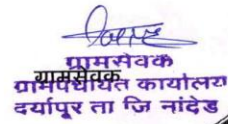 ग्रामसेवक
ग्रामसेवक
ग्रामपंचायत कार्यालय
दर्यापूर ता जि नांदेड